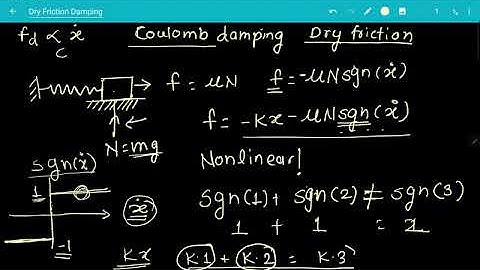 Dry Friction Damping
f_d ∝ ẋ
c
Coulomb damping Dry friction
f = μN f = -μN sgn(ẋ)
f = -Kx - μN sgn(ẋ)
N = mg
Nonlinear!
sgn(ẋ)
1
ẋ
-1
sgn(1) + sgn(2) ≠ sgn(3)
1 + 1 = 1
K x K·1 + K·2 = K·3